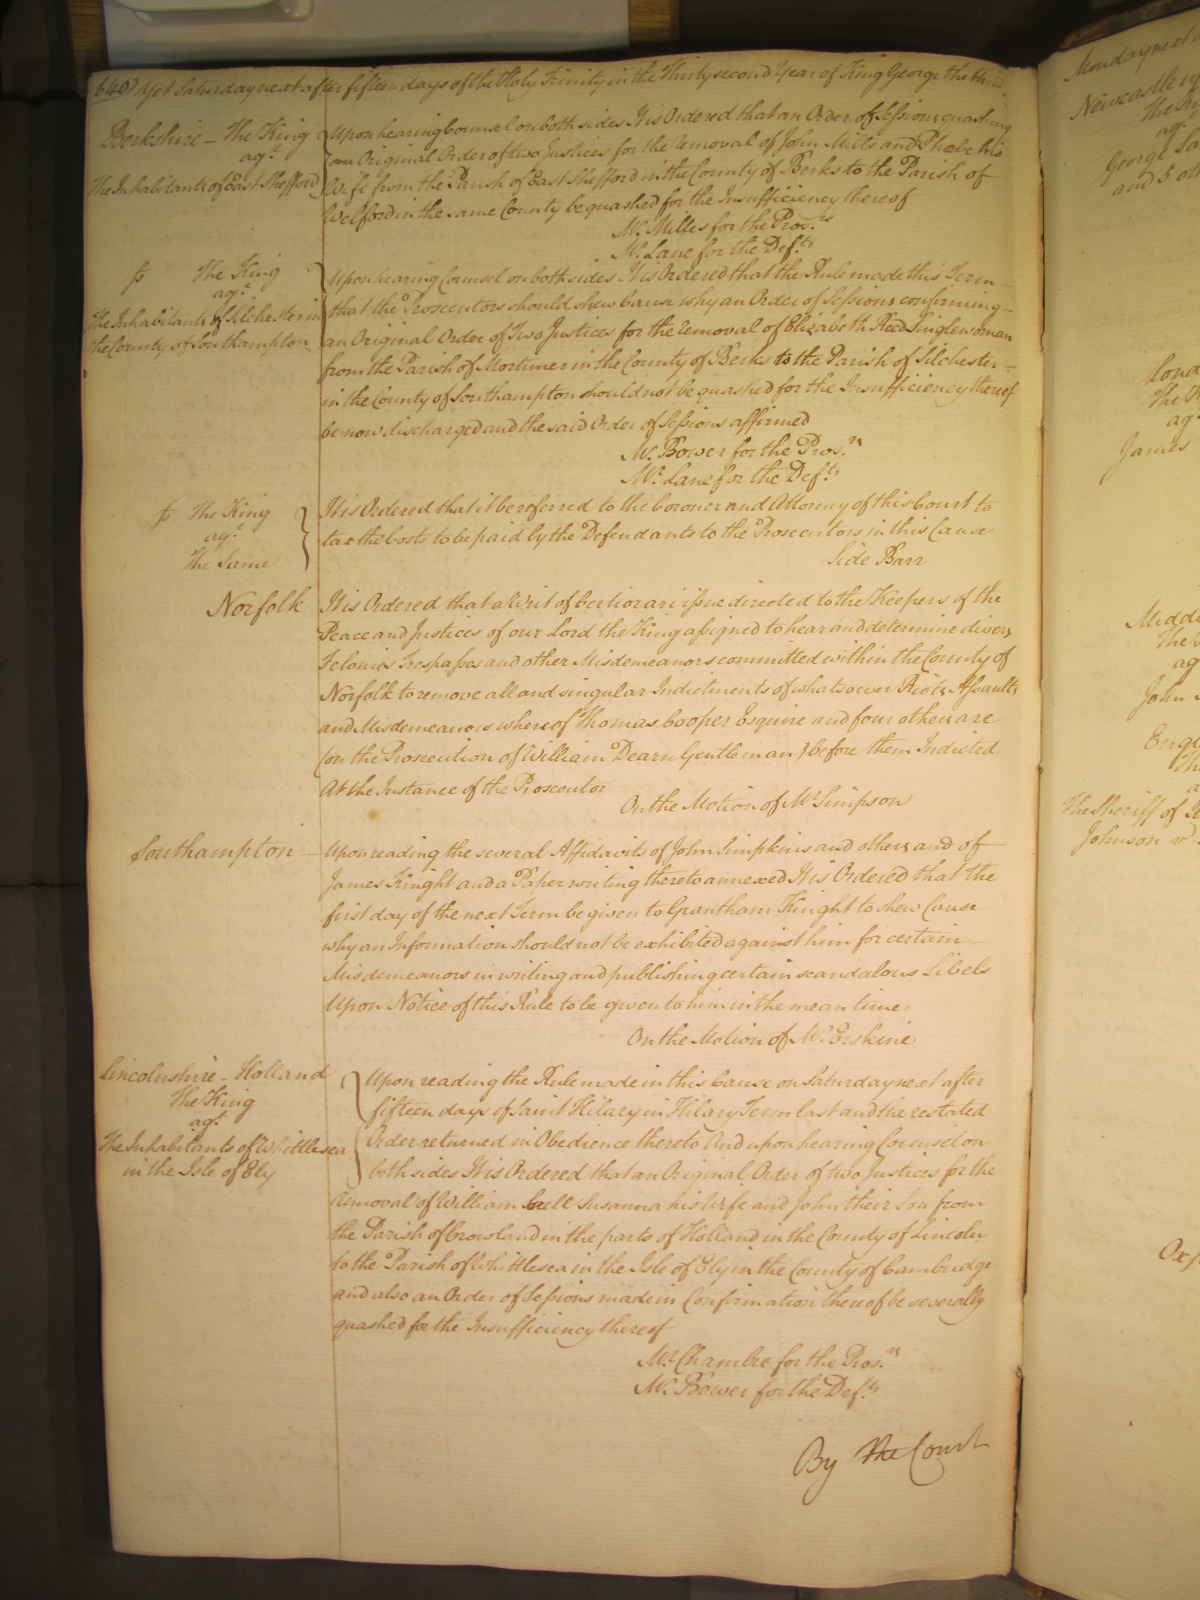 640 Yet Saturday next after fifteen days of the Holy Trinity in the Thirty second Year of King George the third
Berkshire – The King
agt
The Inhabitants of East Shefford
Upon hearing Counsel on both sides It is Ordered that an Order of Sessions quashing
an Original Order of two Justices for the removal of John Mills and Phœbe his
Wife from the Parish of East Shefford in the County of Berks to the Parish of
Welford in the same County be quashed for the Insufficiency thereof
Mr. Milles for the Pros.rs
Mr. Lane for the Def.ts
The King
agt
The Inhabitants of Silchester in
the County of Southampton
Upon hearing Counsel on both sides It is Ordered that the Rule made this Term
that the Prosecutors should shew Cause why an Order of Sessions confirming
an Original Order of Two Justices for the removal of Elizabeth Reed Singlewoman
from the Parish of Mortimer in the County of Berks to the Parish of Silchester
in the County of Southampton should not be quashed for the Insufficiency thereof
be now discharged and the said Order of Sessions affirmed
Mr. Bower for the Pros.rs
Mr. Lane for the Def.ts
The King
agt
The Same
It is Ordered that it be referred to the Coroner and Attorney of this Court to
tax the Costs to be paid by the Defendants to the Prosecutors in this Cause
Side Barr
Norfolk
It is Ordered that a Writ of Certiorari issue directed to the Keepers of the
Peace and Justices of our Lord the King assigned to hear and determine divers
Felonies Trespasses and other Misdemeanors committed within the County of
Norfolk to remove all and singular Indictments of whatsoever Riots Assaults
and Misdemeanors whereof Thomas Cooper Esquire and four others are
(on the Prosecution of William Dearn Gentleman) before them Indicted
At the Instance of the Prosecutor
On the Motion of Mr Simpson
Southampton
Upon reading the several Affidavits of John Simpkins and others and of
James Knight and a Paper writing thereto annexed It is Ordered that the
first day of the next Term be given to Grantham Knight to shew Cause
why an Information should not be exhibited against him for certain
Misdemeanors in writing and publishing certain scandalous Libels
Upon Notice of this Rule to be given to him in the mean time
On the Motion of Mr. Erskine
Lincolnshire – Holland
The King
agt
The Inhabitants of Whittlesea
in the Isle of Ely
Upon reading the Rule made in this Cause on Saturday next after
fifteen days of Saint Hilary in Hilary Term last and the restated
Order returned in Obedience thereto And upon hearing Counsel on
both sides It is Ordered that an Original Order of two Justices for the
removal of William Susanna his Wife and John their Son from
the Parish of Crowland in the parts of Holland in the County of Lincoln
to the Parish of Whittlesea in the Isle of Ely in the County of Cambridge
and also an Order of Sessions made in Confirmation thereof be severally
quashed for the Insufficiency thereof
Mr Chambre for the Pros.rs
Mr. Bower for the Def.ts
By the Court
Monday next
Newcastle
The
agt
George
and 5
The
agt
James
The
ag
John
The Sheriff of
Johnson